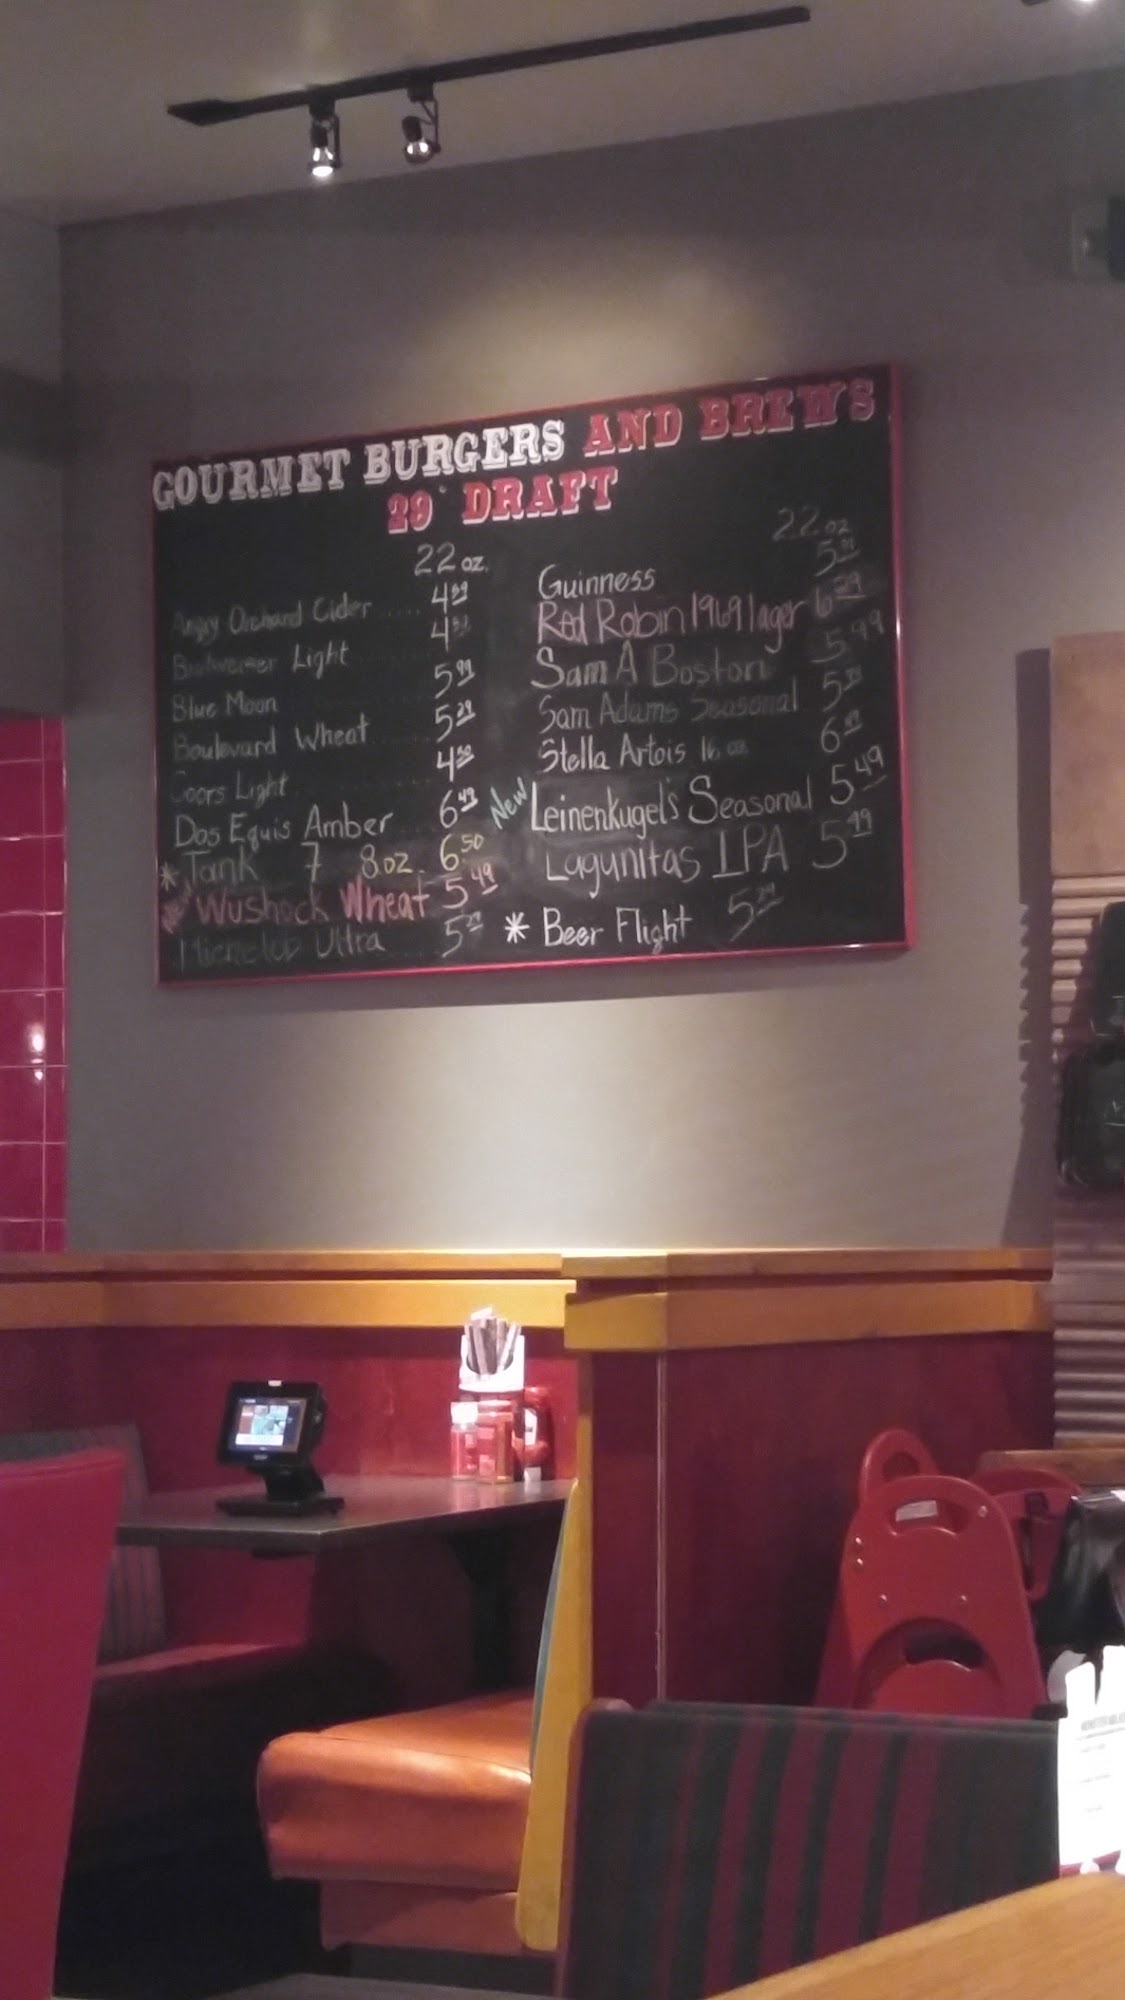 GOURMET BURGERS AND BREWS
29° DRAFT
22 oz.
Angry Orchard Cider .... 4
Budweiser Light 4
Blue Moon 5 99
Boulevard Wheat 5 29
Coors Light 4 50
Dos Equis Amber 6 49
* Tank 7 8oz. 6.50
Wushock Wheat 5 49
Michelob Ultra 5
22 oz.
Guinness 5
Red Robin 1969 lager 6 29
Sam A Boston 5.99
Sam Adams Seasonal 5
Stella Artois 16 oz 6
New Leinenkugel's Seasonal 5 49
Lagunitas IPA 5 99
* Beer Flight 5